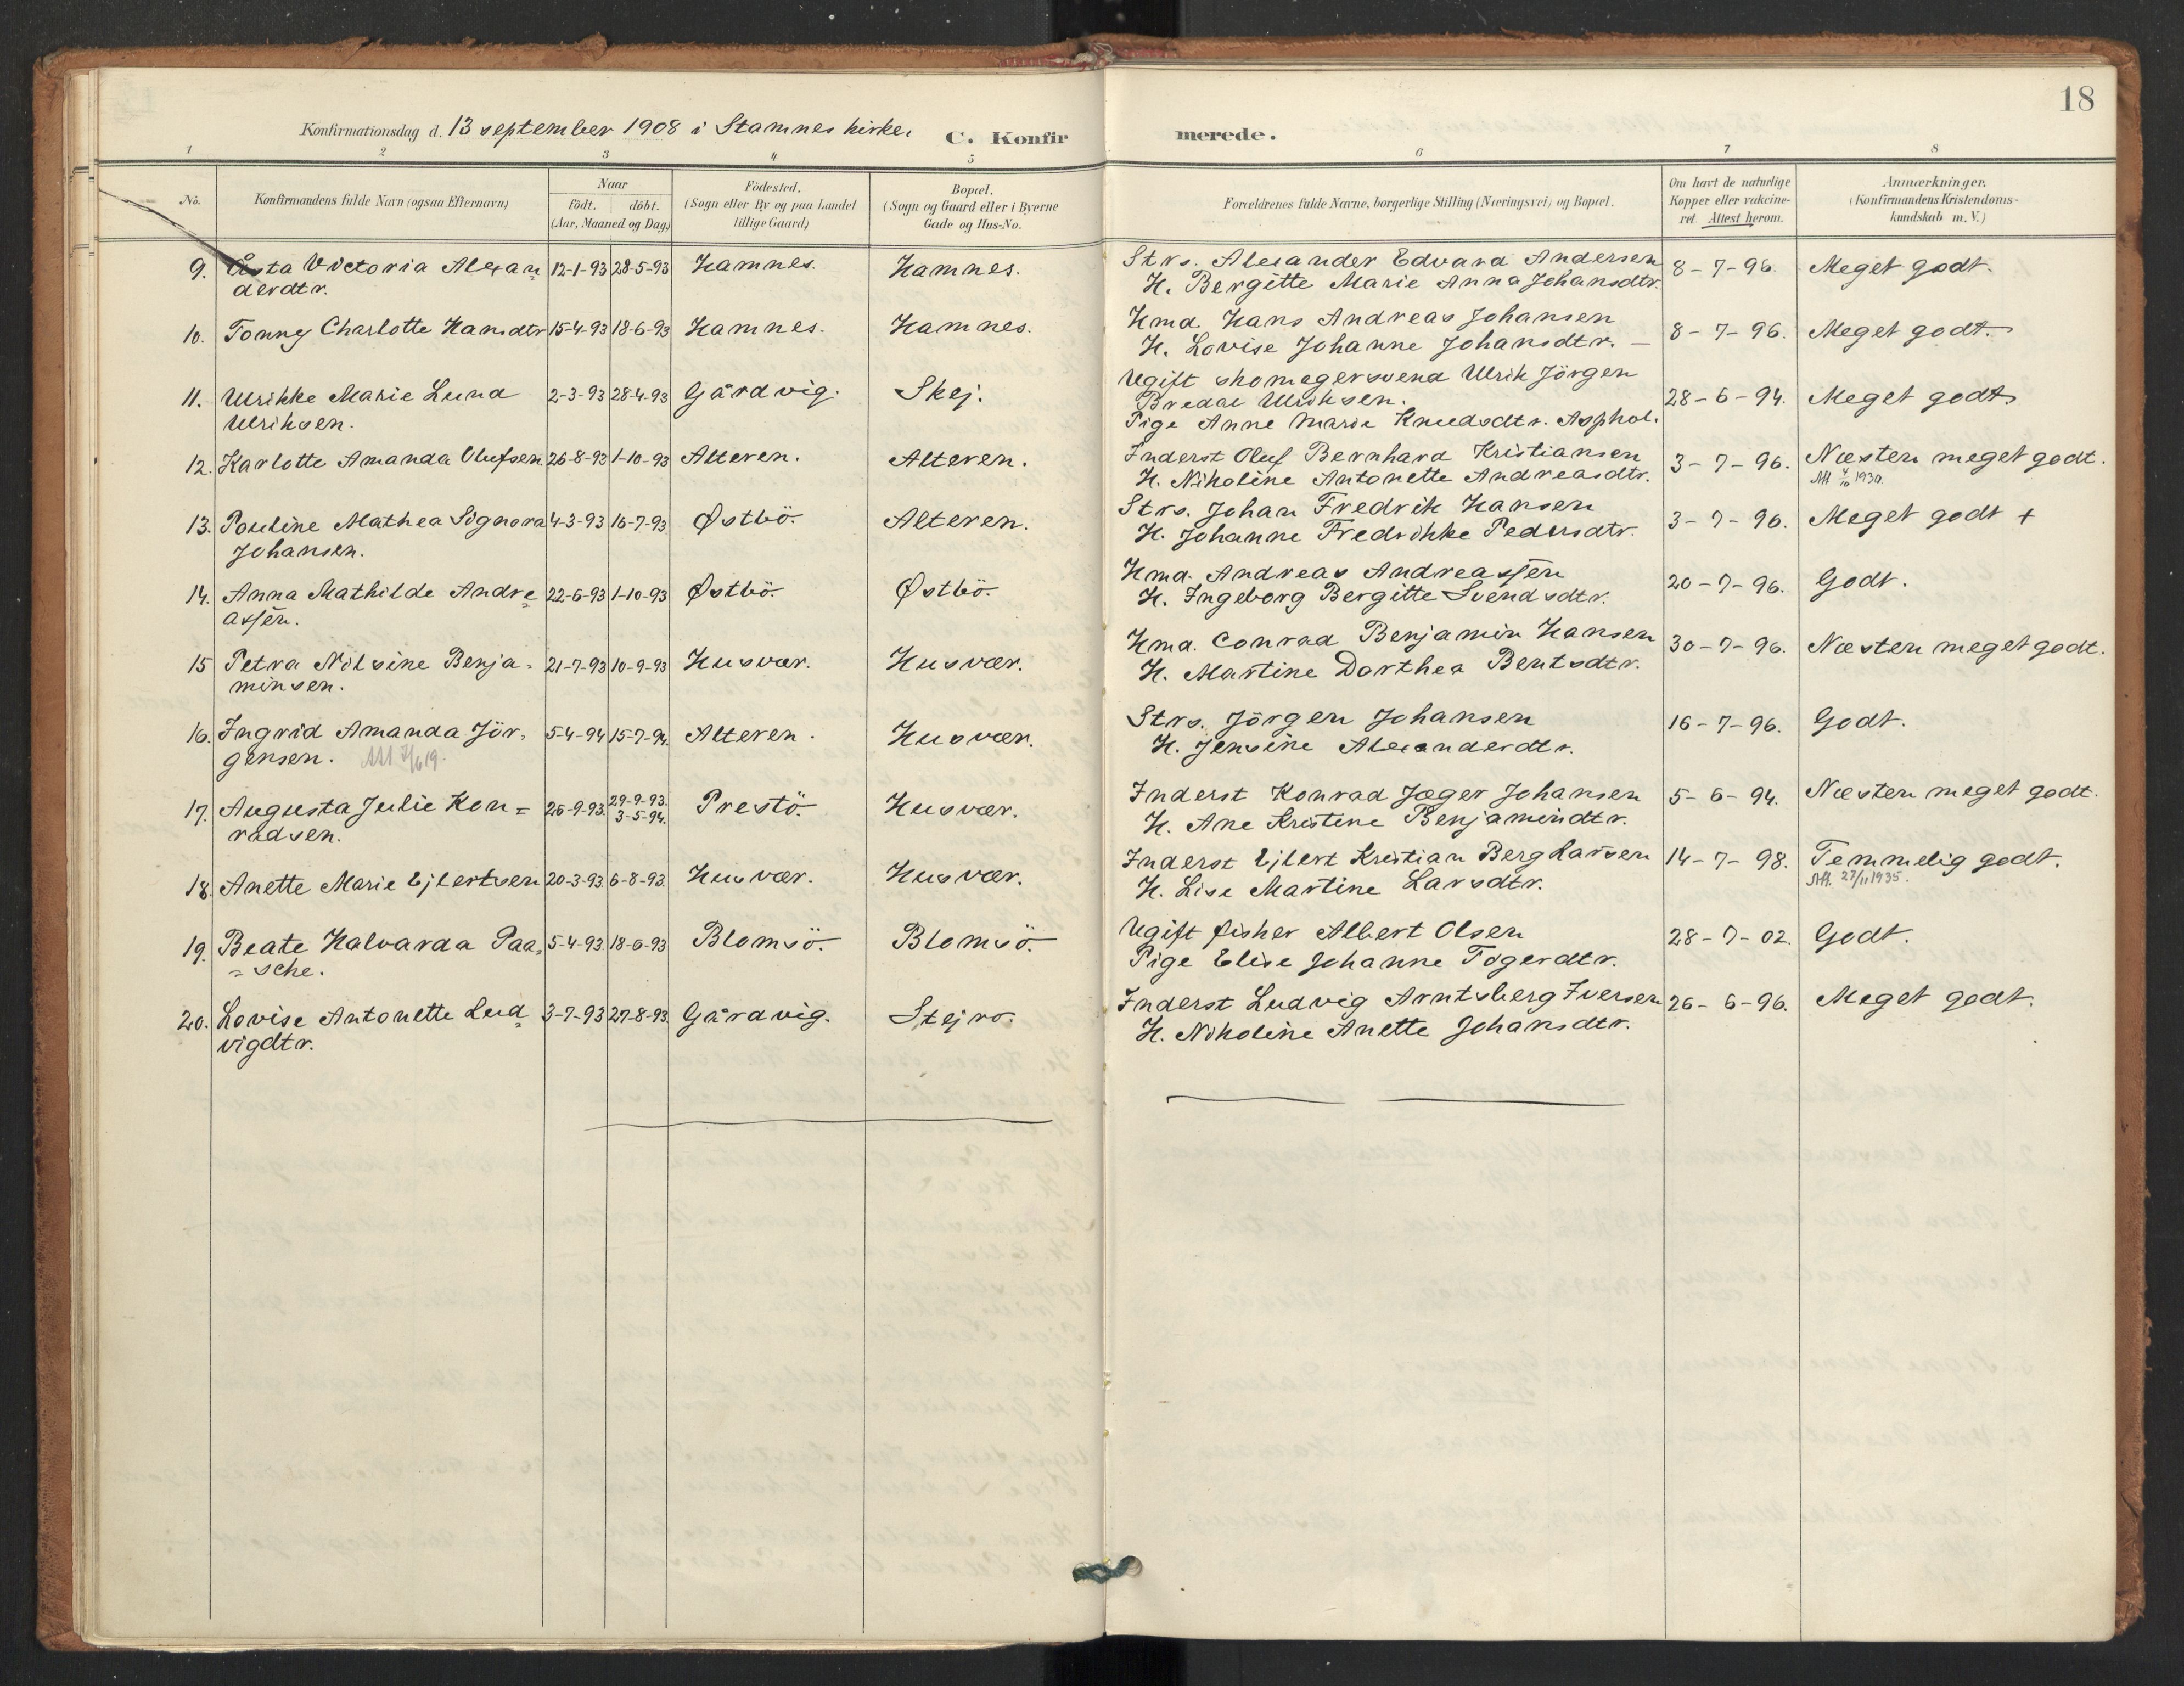 18
Konfirmationsdag d. 13 september 1908 i Stamnes kirke.
C. Konfirmerede.
1 2 3 4 5 6 7 8
No.
Konfirmandens fulde Navn (ogsaa Efternavn)
Naar
födt. döbt.
(Aar, Maaned og Dag)
Födested.
(Sogn eller By og paa Landet
tillige Gaard)
Bopæl.
(Sogn og Gaard eller i Byerne
Gade og Hus-No.
Forældrenes fulde Navne, borgerlige Stilling (Næringsvei) og Bopæl.
Om havt de naturlige
Kopper eller vakcine-
ret. Attest herom.
Anmærkninger.
(Konfirmandens Kristendoms-
kundskab m. V.)
9. Åsta Victoria Alexan= 12-1-93 28-5-93 Hamnes. Hamnes. Strs. Alexander Edvard Andersen 8-7-96. Meget godt.
derdtr. H. Bergitte Marie Anna Johansdtr.
10. Tonny Charlotte Hansdtr 15-4-93 18-6-93 Hamnes. Hamnes. Hmd. Hans Andreas Johansen 8-7-96. Meget godt.
H. Lovise Johanne Johansdtr. —
11. Ulrikke Marie Lund 2-3-93 28-4-93 Gårdvig. Skej. Ugift skomagersvend Ulrik Jörgen 28-6-94. Meget godt.
Ulriksen. Bredal Ulriksen.
Pige Anne Marie Knudsdtr. Asphol.
12. Karlotte Amanda Olufsen 26-8-93 1-10-93 Alteren. Alteren. Inderst Oluf Bernhard Kristiansen 3-7-96. Næsten meget godt.
H. Nikoline Antonette Andreasdtr.
13. Pouline Mathea Signora 4-3-93 16-7-93 Østbö. Alteren. Strs. Johan Fredrik Hansen 3-7-96. Meget godt +
Johansen. H. Johanne Fredrikke Pedersdtr.
14. Anna Mathilde Andre= 22-6-93 1-10-93 Østbö. Østbö. Hmd. Andreas Andreassen 20-7-96. Godt.
assen. H. Ingeborg Bergitte Svendsdtr.
15 Petra Nilsine Benja- 21-7-93 10-9-93 Husvær. Husvær. Hmd. Conrad Benjamin Hansen 30-7-96. Næsten meget godt.
minsen. H. Martine Dorthea Bentsdtr.
16. Ingrid Amanda Jör- 5-4-94 15-7-94. Alteren. Husvær. Strs. Jörgen Johansen 16-7-96. Godt.
gensen. H. Jensine Alexanderdtr.
17. Augusta Julie Kon= 26-9-93. 29-9-93. 3-5-94. Prestö. Husvær. Inderst Konrad Jæger Johansen 5-6-94. Næsten meget godt.
radsen. H. Ane Kristine Benjamindtr.
18. Anette Marie Ejlertsen 20-3-93. 6-8-93. Husvær. Husvær. Inderst Ejlert Kristian Berg Larsen 14-7-98. Temmelig godt.
H. Lise Martine Larsdtr. Att. 27/11 1935.
19. Beate Halvarda Paa= 5-4-93. 18-6-93 Blomsö. Blomsö. Ugift fisker Albert Olsen 28-7-02. Godt.
=sche. Pige Elise Johanne Tögerdtr.
20. Lovise Antonette Lud= 3-7-93 27-8-93. Gårdvig. Stejro. Inderst Ludvig Arntsberg Iversen 26-6-96. Meget godt.
vigdtr. H. Nikoline Anette Johansdtr.